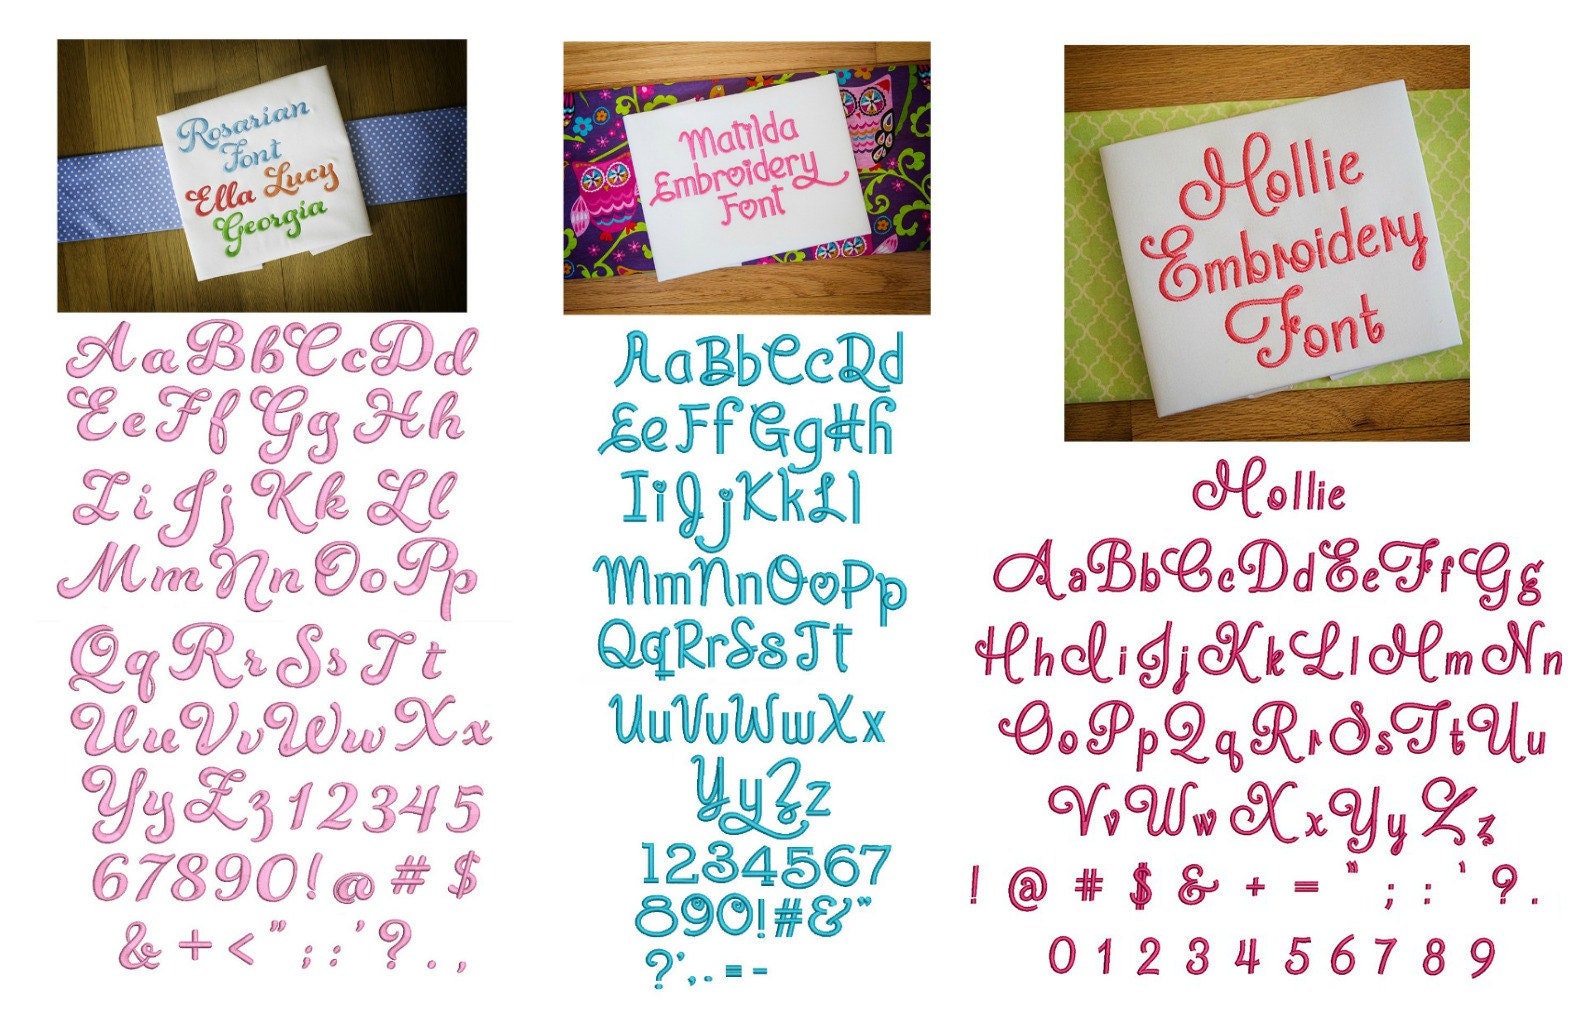 Rosarian
Font
Ella Lucy
Georgia
AaBbCcDd
EeFfGgHh
IiJjKkLl
MmNnOoPp
QqRrSsTt
UuVvWwXx
YyZz12345
67890!@#$
&+<";:'?.,
Matilda
Embroidery
Font
AaBbCcDd
EeFfGgHh
IiJjKkLl
MmNnOoPp
QqRrSsTt
UuVvWwXx
YyZz
1234567
890!#&"
?',.=-
Mollie
Embroidery
Font
Mollie
AaBbCcDdEeFfGg
HhIiJjKkLlMmNn
OoPpQqRrSsTtUu
VvWwXxYyZz
! @ # $ & + = " ; : ' ? .
0 1 2 3 4 5 6 7 8 9